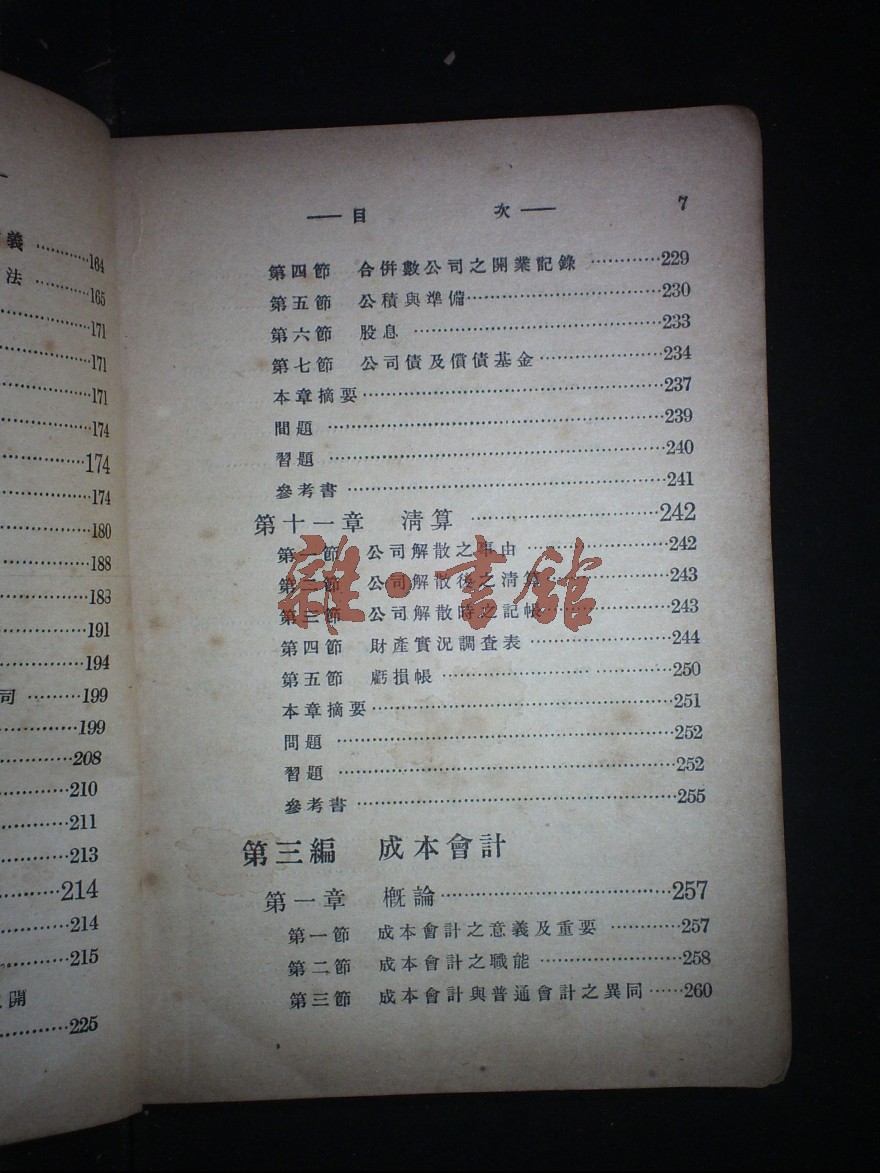 義…………164
法…………165
…………171
…………171
…………171
…………174
…………174
…………174
…………180
…………188
…………183
…………191
…………194
司…………199
…………199
…………208
…………210
…………211
…………213
…………214
…………214
…………215
開
…………225
——目 次—— 7
第四節 合併數公司之開業記錄…………229
第五節 公積與準備…………230
第六節 股息…………233
第七節 公司債及償債基金…………234
本章摘要…………237
問題…………239
習題…………240
參考書…………241
第十一章 清算…………242
第一節 公司解散之事由…………242
第二節 公司解散後之清算…………243
第三節 公司解散時之記帳…………243
第四節 財產實況調查表…………244
第五節 虧損帳…………250
本章摘要…………251
問題…………252
習題…………252
參考書…………255
第三編 成本會計
第一章 概論…………257
第一節 成本會計之意義及重要…………257
第二節 成本會計之職能…………258
第三節 成本會計與普通會計之異同……260
雜·書館